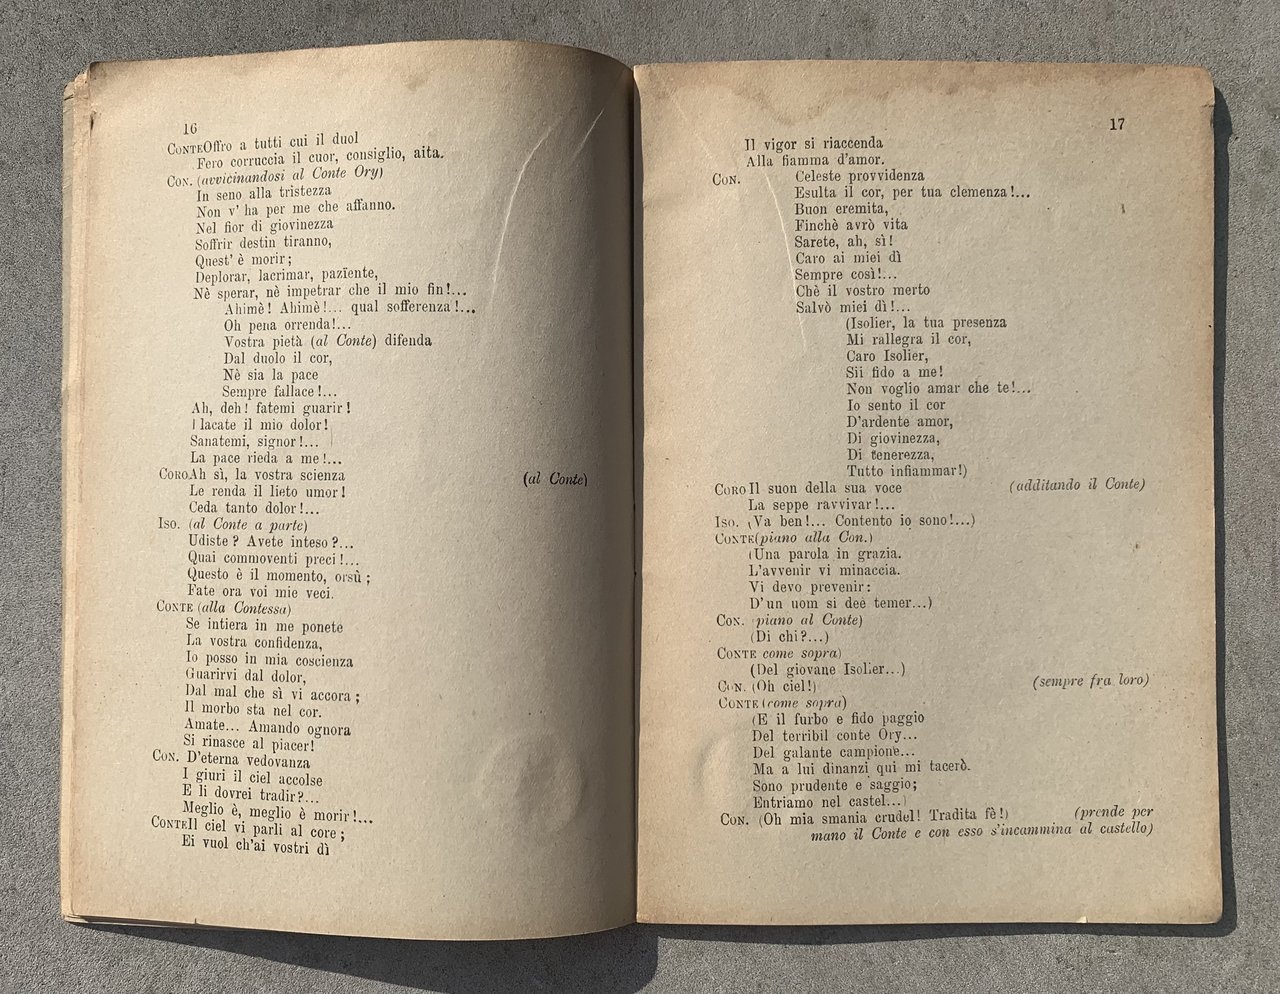 16
CONTE Offro a tutti cui il duol
Fero corruccia il cuor, consiglio, aita.
CON. (avvicinandosi al Conte Ory)
In seno alla tristezza
Non v' ha per me che affanno.
Nel fior di giovinezza
Soffrir destin tiranno,
Quest' è morir;
Deplorar, lacrimar, pazïente,
Nè sperar, nè impetrar che il mio fin!...
Ahimè! Ahimè!... qual sofferenza!...
Oh pena orrenda!...
Vostra pietà (al Conte) difenda
Dal duolo il cor,
Nè sia la pace
Sempre fallace!...
Ah, deh! fatemi guarir!
lacate il mio dolor!
Sanatemi, signor!...
La pace rieda a me!...
CORO Ah sì, la vostra scienza (al Conte)
Le renda il lieto umor!
Ceda tanto dolor!...
ISO. (al Conte a parte)
Udiste? Avete inteso?...
Quai commoventi preci!...
Questo è il momento, orsù;
Fate ora voi mie veci.
CONTE (alla Contessa)
Se intiera in me ponete
La vostra confidenza,
Io posso in mia coscienza
Guarirvi dal dolor,
Dal mal che sì vi accora;
Il morbo sta nel cor.
Amate... Amando ognora
Si rinasce al piacer!
CON. D'eterna vedovanza
I giuri il ciel accolse
E li dovrei tradir?...
Meglio è, meglio è morir!...
CONTE Il ciel vi parli al core;
Ei vuol ch'ai vostri dì
17
Il vigor si riaccenda
Alla fiamma d'amor.
CON. Celeste provvidenza
Esulta il cor, per tua clemenza!...
Buon eremita,
Finchè avrò vita
Sarete, ah, sì!
Caro ai miei dì
Sempre così!...
Chè il vostro merto
Salvò miei dì!...
(Isolier, la tua presenza
Mi rallegra il cor,
Caro Isolier,
Sii fido a me!
Non voglio amar che te!...
Io sento il cor
D'ardente amor,
Di giovinezza,
Di tenerezza,
Tutto infiammar!)
CORO Il suon della sua voce (additando il Conte)
La seppe ravvivar!...
ISO. (Va ben!... Contento io sono!...)
CONTE (piano alla Con.)
(Una parola in grazia.
L'avvenir vi minaccia.
Vi devo prevenir:
D'un uom si deè temer...)
CON. piano al Conte)
(Di chi?...)
CONTE come sopra)
(Del giovane Isolier...)
CON. (Oh ciel!) (sempre fra loro)
CONTE (come sopra)
(E il furbo e fido paggio
Del terribil conte Ory...
Del galante campione...
Ma a lui dinanzi qui mi tacerò.
Sono prudente e saggio;
Entriamo nel castel...)
CON. (Oh mia smania crudel! Tradita fè!) (prende per
mano il Conte e con esso s'incammina al castello)